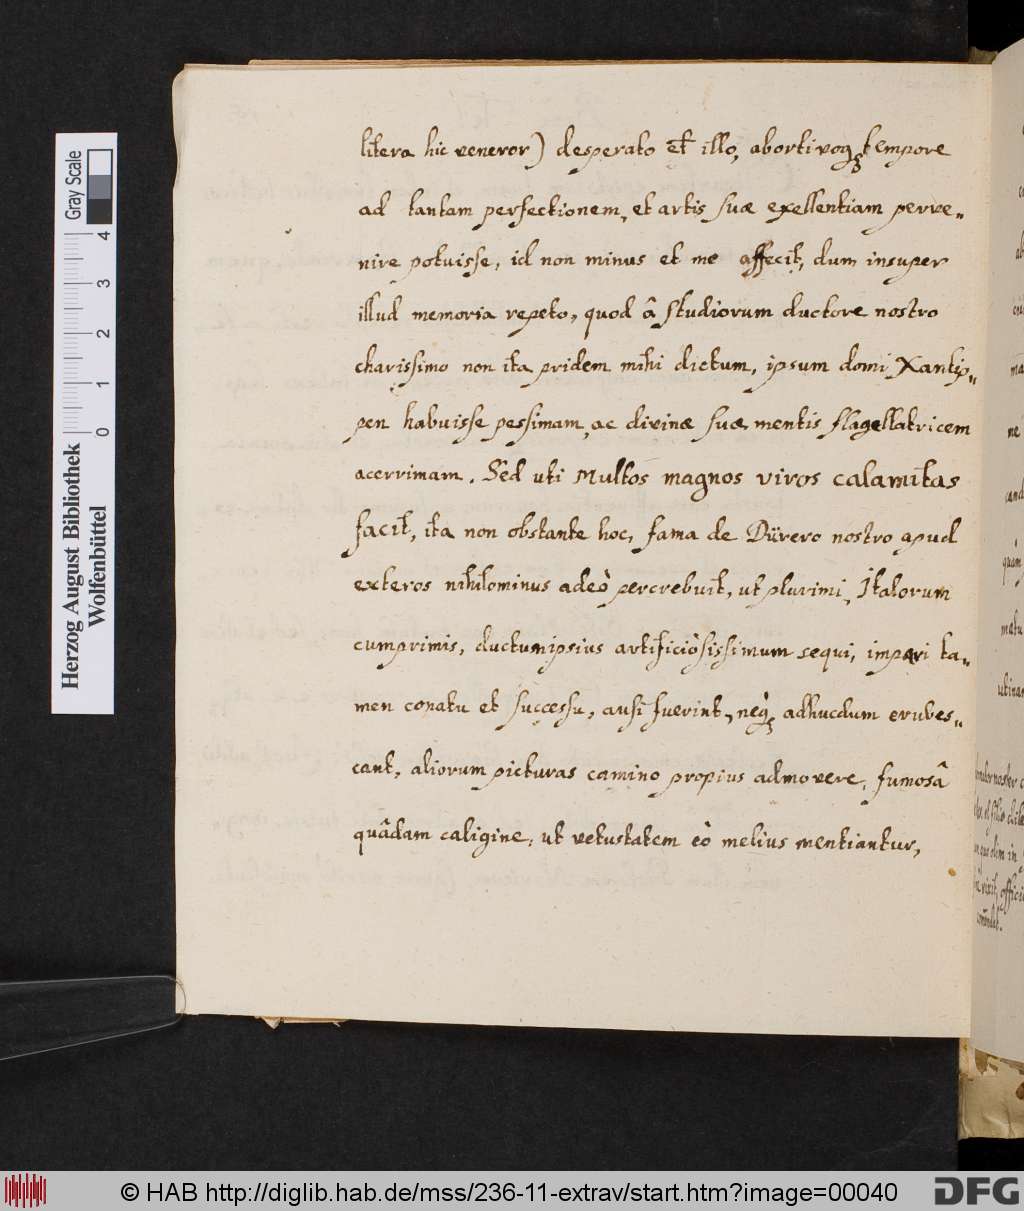 litera hic veneror) desperato et illo, abortivoq; tempore
ad tantam perfectionem, et artis suæ exellentiam perve„
nire potuisse, id non minus et me affecit, dum insuper
illud memoria repeto, quod â studiorum ductore nostro
charissimo non ita pridem mihi dictum, ipsum domi Xantip„
pen habuisse pessimam, ac divinæ suæ mentis flagellatricem
acerrimam. Sed uti multos magnos viros calamitas
facit, ita non obstante hoc, fama de Dürero nostro apud
exteros nihilominus adeò percrebuit, ut plurimi, Italorum
cumprimis, ductum ipsius artificiòsissimum sequi, impari ta„
men conatu et successu, ausi fuerint, neq; adhucdum erubes„
cant, aliorum picturas camino propius admovere, fumosâ
quâdam caligine, ut vetustatem eò melius mentiantur,
Herzog August Bibliothek
Wolfenbüttel
0 1 2 3 4
Gray Scale
© HAB http://diglib.hab.de/mss/236-11-extrav/start.htm?image=00040
DFG